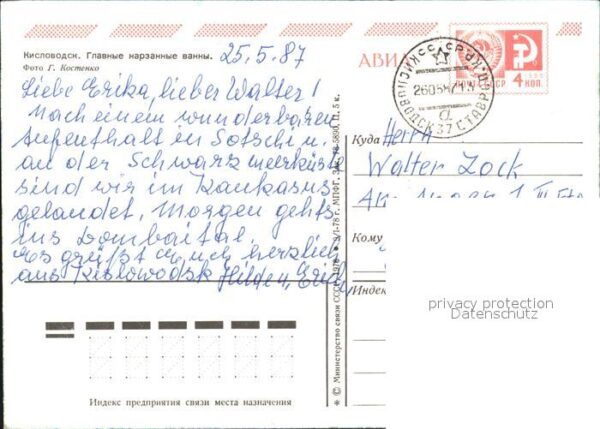 Кисловодск. Главные нарзанные ванны.
Фото Г. Костенко
25.5.87
Liebe Erika, lieber Walter!
Nach einem wunderbaren
Aufenthalt in Sotschi u.
an der Schwarzmeerküste
sind wir im Kaukasus
gelandet. Morgen gehts
ins Dombaital.
Es grüßt Euch herzlich
aus Kislowodsk Hilde u. Erich
АВИА
4 КОП.
КИСЛОВОДСК 37 СТАВРОП. КР.
а
Куда Herrn
Walter Zock
Кому
Индекс
privacy protection
Datenschutz
© Министерство связи СССР
Индекс предприятия связи места назначения